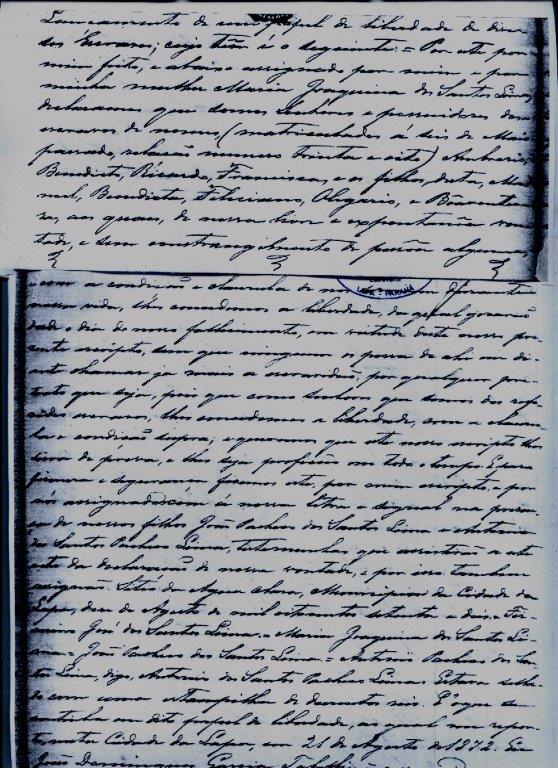 Lancamento de um papel de liberdade de diver-
sos Escravos, cujo theor é o seguinte: = Por este por
mim feito, e abaixo assignado por mim, e por
minha mulher Maria Joaquina dos Santos Lima,
declaramos que somos Senhores e possuidores dos
escravos de nomes (matriculados á seis de Maio
passado, relação numero trinta e oito)
Benedicto, Ricardo, Francisca, e os filhos desta, Ma-
noel, Benedicta, Feliciano, Olegario, e Boaventu-
ra, aos quaes, de nossa livre e expontanêa von-
tade, e sem constrangimento de pessôa alguma,
com a condição e clausula de nos durante
nossa vida, lhes concedemos a liberdade, da qual gosarão
desde o dia do nosso fallecimento, em virtude deste nosso pre-
sente escripto, sem que ninguem os possa de
chamar ja mais a escravidão, por qualquer pre-
texto que seja, pois que como senhores que somos dos refe-
ridos escravos, lhes concedemos a liberdade, com a clausu-
la e condição supra; e queremos que este nosso escripto lhes
sirva de prova, e lhes seja proficuo em todo o tempo. E para
firmeza e segurança fizemos este, por mim escripto, e por
nós assignado com á nossa letra e signal na presen-
ça de nossos filhos João Pacheco dos Santos Lima e Antonio
dos Santos Pacheco Lima, testemunhas que assistirão a este
acto da declaração de nossa vontade, e por isso tambem
assignão. Sitio da Agua Clara, Municipio da Cidade da
Lapa, doze de Agosto de mil oitocentos setenta e dois. = Fir-
mino José dos Santos Lima. = Maria Joaquina dos Santos Li-
ma = João Pacheco dos Santos Lima. = Antonio Pacheco dos San-
tos Lima, digo, Antonio dos Santos Pacheco Lima. Estava sella-
do com uma estampilha de duzentos reis. É o que se
continha em dito papel de liberdade, ao qual me repor-
to nesta Cidade da Lapa, em 21 de Agosto de 1872. Eu
João Domingues Garcia Tabellião
LAPA - PARANÁ